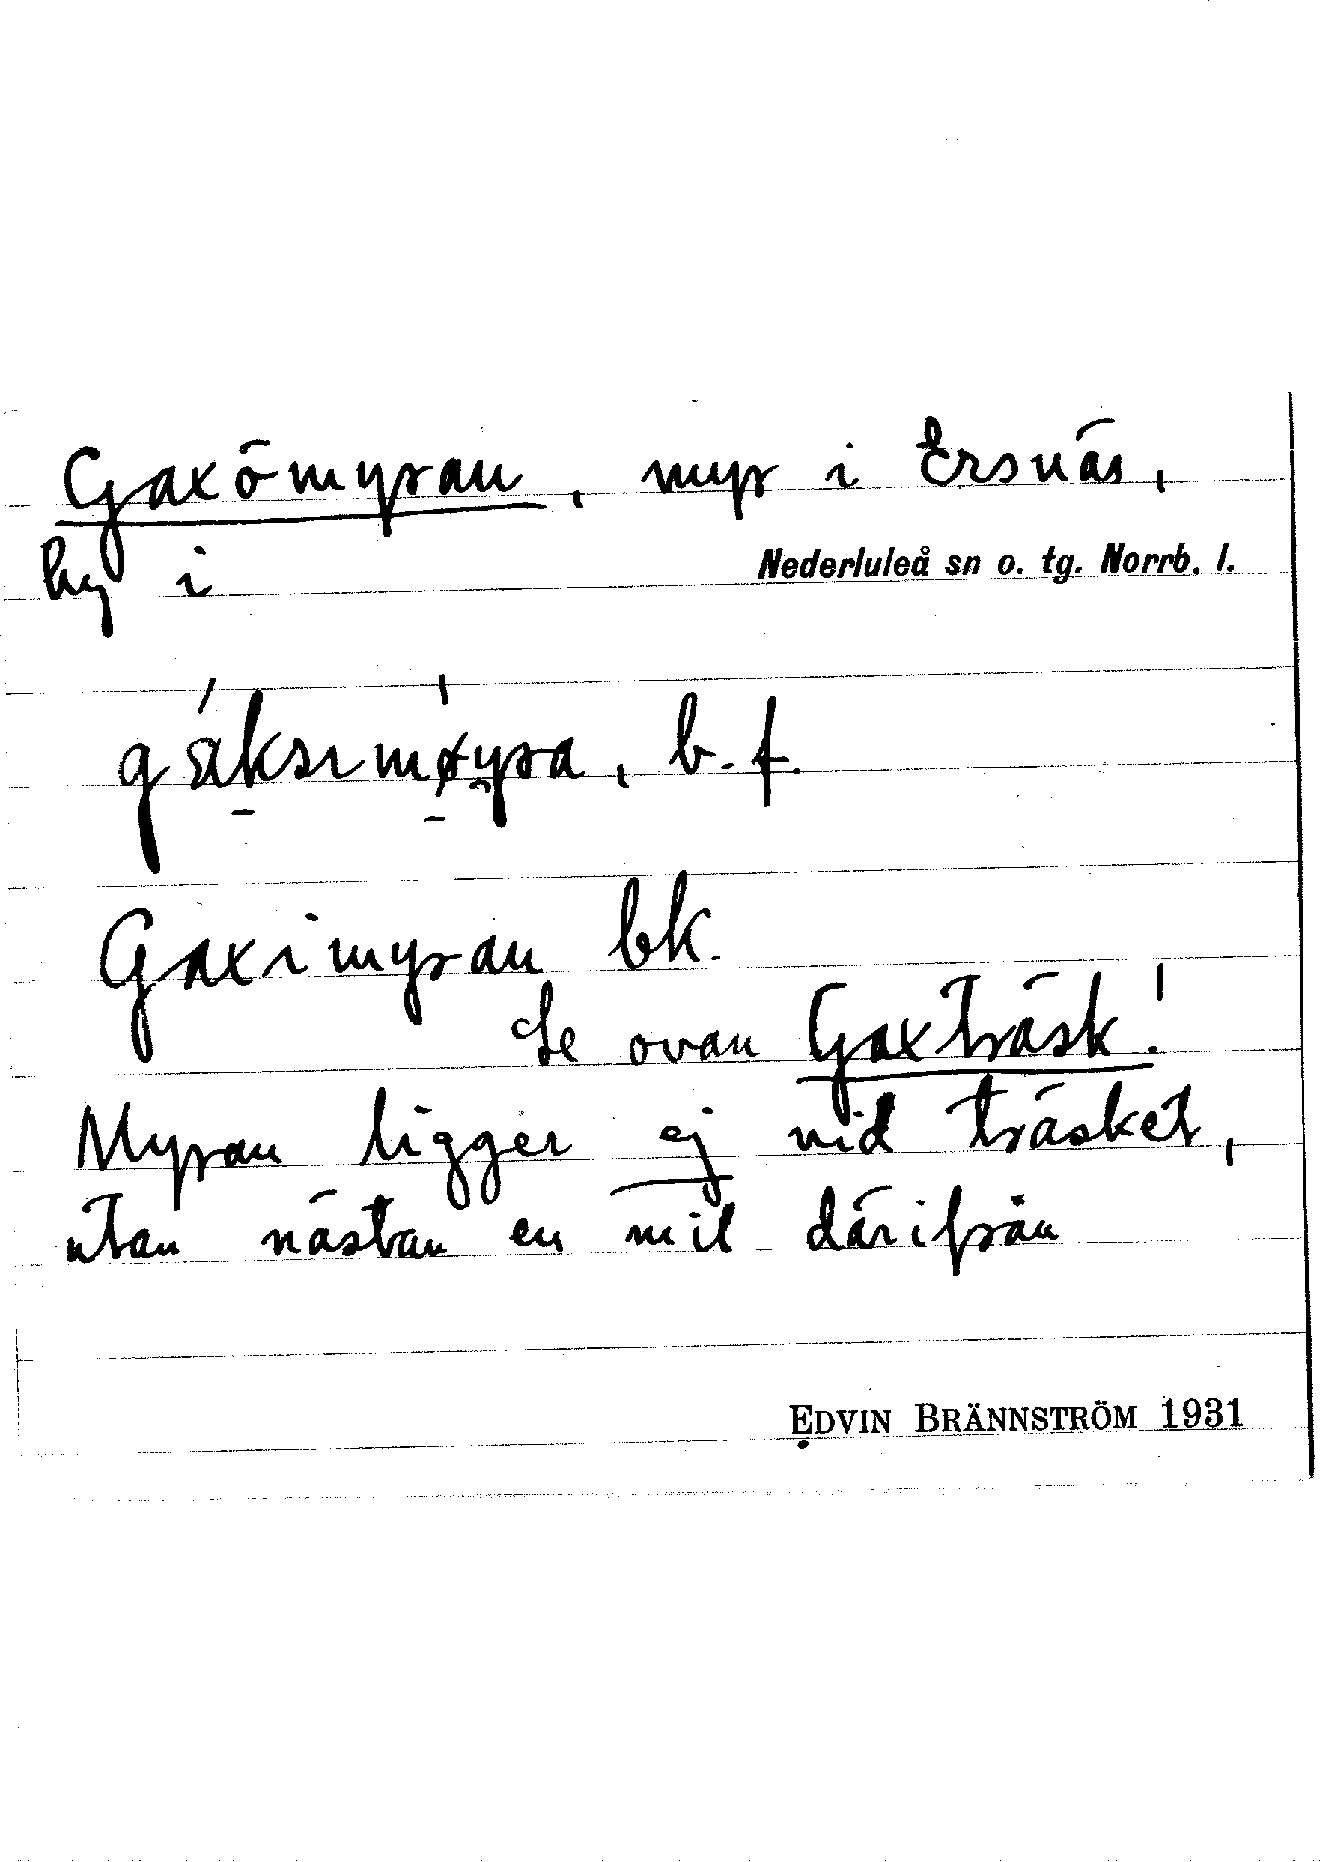 Gaxömyran, myr i Ersnäs,
by i Nederluleå sn o. tg. Norrb. l.
gáksımøyra, b. f.
Gaximyran bk.
Se ovan Gaxträsk!
Myran ligger ej vid träsket,
utan nästan en mil därifrån
EDVIN BRÄNNSTRÖM 1931